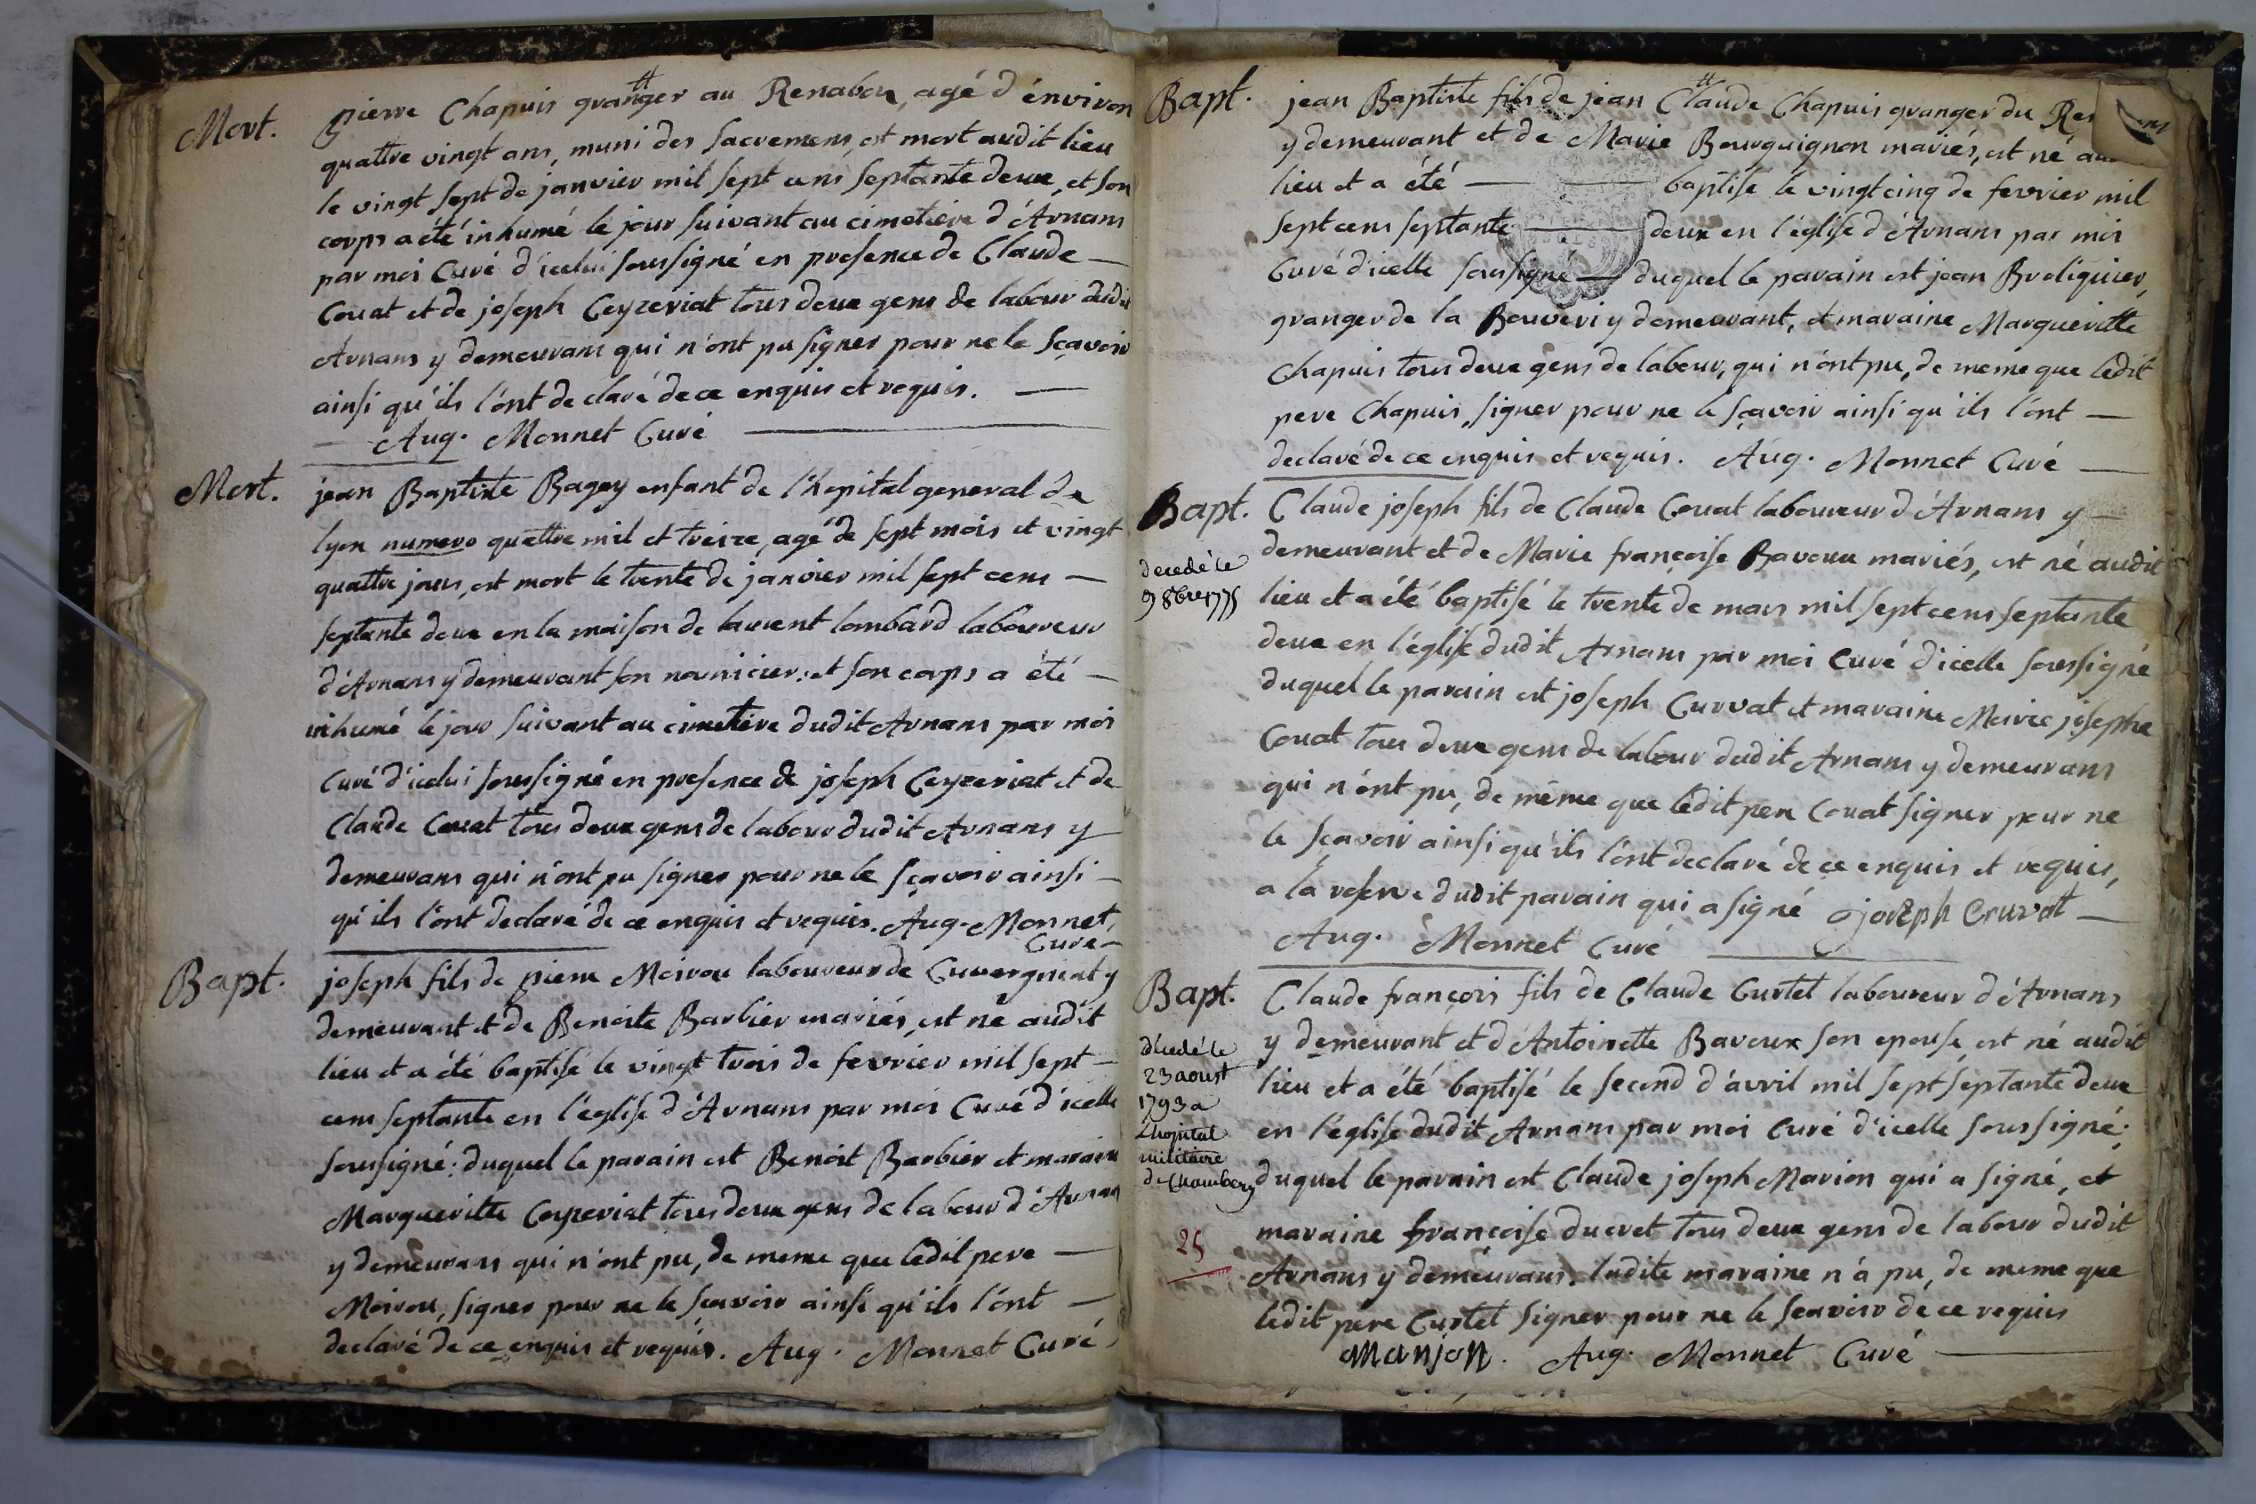 Mort. pierre Chapuis granger au Renabou, agé d'environ
quattre vingt ans, muni des sacremens, est mort audit lieu
le vingt sept de janvier mil sept cens septante deux, et son
corps a été inhumé le jour suivant au cimetiere d'Arnans
par moi Curé d'icelui soussigné en presence de Claude —
Couat et de joseph Ceyzeriat tous deux gens de labour dudit
Arnans y demeurans qui n'ont pu signer pour ne le sçavoir
ainsi qu'ils l'ont declaré de ce enquis et requis. —
— Aug. Monnet Curé —
Mort. jean Baptiste Bagey enfant de l'hopital general de
lyon numero quattre mil et treize, agé de sept mois et vingt
quattre jours, est mort le trente de janvier mil sept cens —
septante deux en la maison de laurent lombard laboureur
d'Arnans y demeurant son nourricier: et son corps a été —
inhumé le jour suivant au cimetiere dudit Arnans par moi
Curé d'icelui soussigné en presence de joseph Ceyzeriat et de
Claude Couat tous deux gens de labour dudit Arnans y
demeurans qui n'ont pu signer pour ne le sçavoir ainsi —
qu'ils l'ont declaré de ce enquis et requis. Aug. Monnet,
Curé —
Bapt. joseph fils de pierre Moirou laboureur de Cuvergniat y
demeurant et de Benoite Barbier mariés, est né audit
lieu et a été baptisé le vingt trois de fevrier mil sept —
cens septante en l'église d'Arnans par moi Curé d'icelle
soussigné: duquel le parain est Benoit Barbier et maraine
Margueritte Ceyzeriat tous deux gens de labour d'Arnans
y demeurans qui n'ont pu, de meme que ledit pere —
Moirou, signer pour ne le sçavoir ainsi qu'ils l'ont —
declaré de ce enquis et requis. Aug. Monnet Curé.
Bapt. jean Baptiste fils de jean Claude Chapuis granger du
y demeurant et de Marie Bourguignon mariés, est né
lieu et a été — — baptisé le vingt cinq de fevrier mil
sept cens septante — deux en l'église d'Arnans par moi
Curé d'icelle soussigné — duquel le parain est jean Broliquier,
granger de la Bouveri y demeurant, et maraine Margueritte
Chapuis tous deux gens de labour, qui n'ont pu, de meme que ledit
pere Chapuis, signer pour ne le sçavoir ainsi qu'ils l'ont —
declaré de ce enquis et requis. Aug. Monnet Curé —
Bapt. Claude joseph fils de Claude Couat laboureur d'Arnans y —
demeurant et de Marie françoise Bavoux mariés, est né audit
decedé le
9 8bre 1775
lieu et a été baptisé le trente de mars mil sept cens septante
deux en l'église dudit Arnans par moi Curé d'icelle soussigné
duquel le parain est joseph Curvat et maraine Marie josephe
Couat tous deux gens de labour dudit Arnans y demeurans
qui n'ont pu, de même que ledit pere Couat signer pour ne
le sçavoir ainsi qu'ils l'ont declaré de ce enquis et requis,
a la reserve dudit parain qui a signé joseph Cruvat —
Aug. Monnet Curé —
Bapt. Claude françois fils de Claude Curtet laboureur d'Arnans
y demeurant et d'Antoinette Bavoux son epouse est né audit
decedé le
23 aoust
1793 a
Lhopital
militaire
de Chambery
lieu et a été baptisé le second d'avril mil sept septante deux
en l'église dudit Arnans par moi Curé d'icelle soussigné:
duquel le parain est Claude joseph Marion qui a signé, et
maraine françoise ducret tous deux gens de labour dudit
25
Arnans y demeurans, ladite maraine n'a pu, de meme que
ledit pere Curtet signer pour ne le sçavoir de ce requis
Marjon. Aug. Monnet Curé —